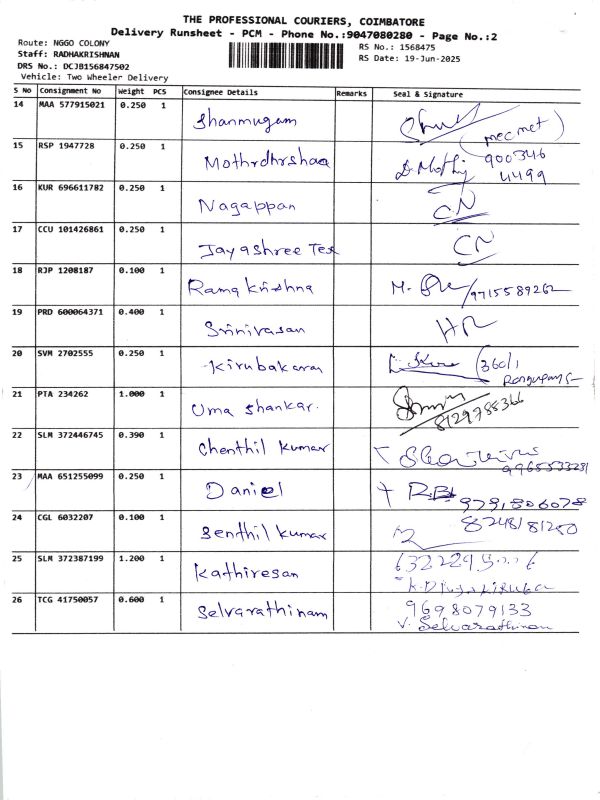 THE PROFESSIONAL COURIERS, COIMBATORE
Delivery Runsheet - PCM - Phone No.:9047080280 - Page No.:2
Route: NGGO COLONY
Staff: RADHAKRISHNAN
DRS No.: DCJB156847502
Vehicle: Two Wheeler Delivery
RS No.: 1568475
RS Date: 19-Jun-2025
S No Consignment No Weight PCS Consignee Details Remarks Seal & Signature
14 MAA 577915021 0.250 1 Shanmugam
15 RSP 1947728 0.250 1 Mothrdhrshaa D. Mothij 900346
4499
16 KUR 696611782 0.250 1 Nagappan CN
17 CCU 101426861 0.250 1 Jayashree Tex CN
18 RJP 1208187 0.100 1 Rama Krishna M. /9715589262
19 PRD 600064371 0.400 1 Srinivasan HR
20 SVM 2702555 0.250 1 Kirubakaran 360/1
21 PTA 234262 1.000 1 Uma Shankar. 8129785366
22 SLM 372446745 0.390 1 Chenthil Kumar 9965533231
23 MAA 651255099 0.250 1 Daniel 9791806078
24 CGL 6032207 0.100 1 Senthil Kumar 8248181280
25 SLM 372387199 1.200 1 Kathiresan
26 TCG 41750057 0.600 1 Selvarathinam 9698079133
V. Selvarathinam